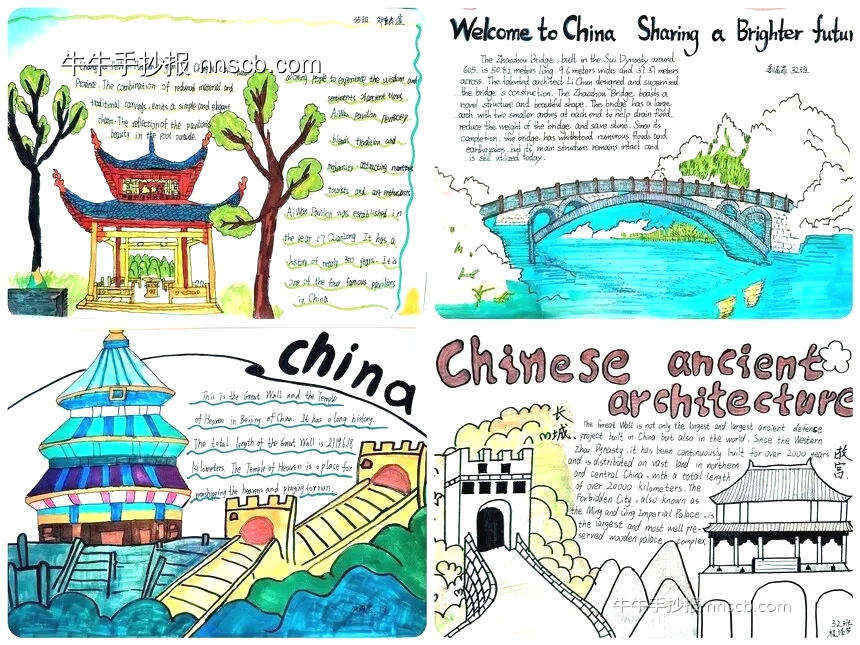 35班
牛牛手抄报 nnscb.com
Province. The combination of redwood material and
traditional carvings, emits a simple and elegant
charm. The reflection of the pavilion's
beauty in the pool outside.
allowing people to experience the wisdom and
sentiments of ancient times.
AiWan pavilion perfectly
blends tradition and
modernity, attracting numerous
tourists and art enthusiasts
AiWan Pavilion was established in
the year 57 QianLong. It has a
history of nearly 300 years. It is
one of the four famous pavilions
in China
Welcome to China Sharing a Brighter futur
32班
The Zhaozhou Bridge, built in the Sui Dynasty around
605, is 50.82 meters long, 9.6 meters wide and 37.37 meters
across. The talented architect Li Chun designed and supervised
the bridge's construction. The Zhaozhou Bridge boasts a
novel structure and beautiful shape. The bridge has a large
arch with two smaller arches at each end to help drain flood,
reduce the weight of the bridge and save stone. Since its
completion, the bridge has withstood numerous floods and
earthquakes, but its main structure remains intact and
is still utilized today.
china
This is the Great Wall and the Temple
of Heaven in Beijing of China. It has a long history.
The total length of the Great Wall is 21196.18
kilometers. The Temple of Heaven is a place for
worshipping the heavens and praying for rain.
Chinese ancient
architecture
长城
The Great Wall is not only the longest and largest ancient defense
project built in China but also in the world. Since the Western
Zhou Dynasty, it has been continuously built for over 2000 years
and is distributed on vast land in northern
and central China, with a total length
of over 20000 kilometers. The
Forbidden City, also known as
the Ming and Qing Imperial Palace, is
the largest and most well pre-
served wooden palace complex.
故宫
牛牛手抄报 nnscb.com
32班